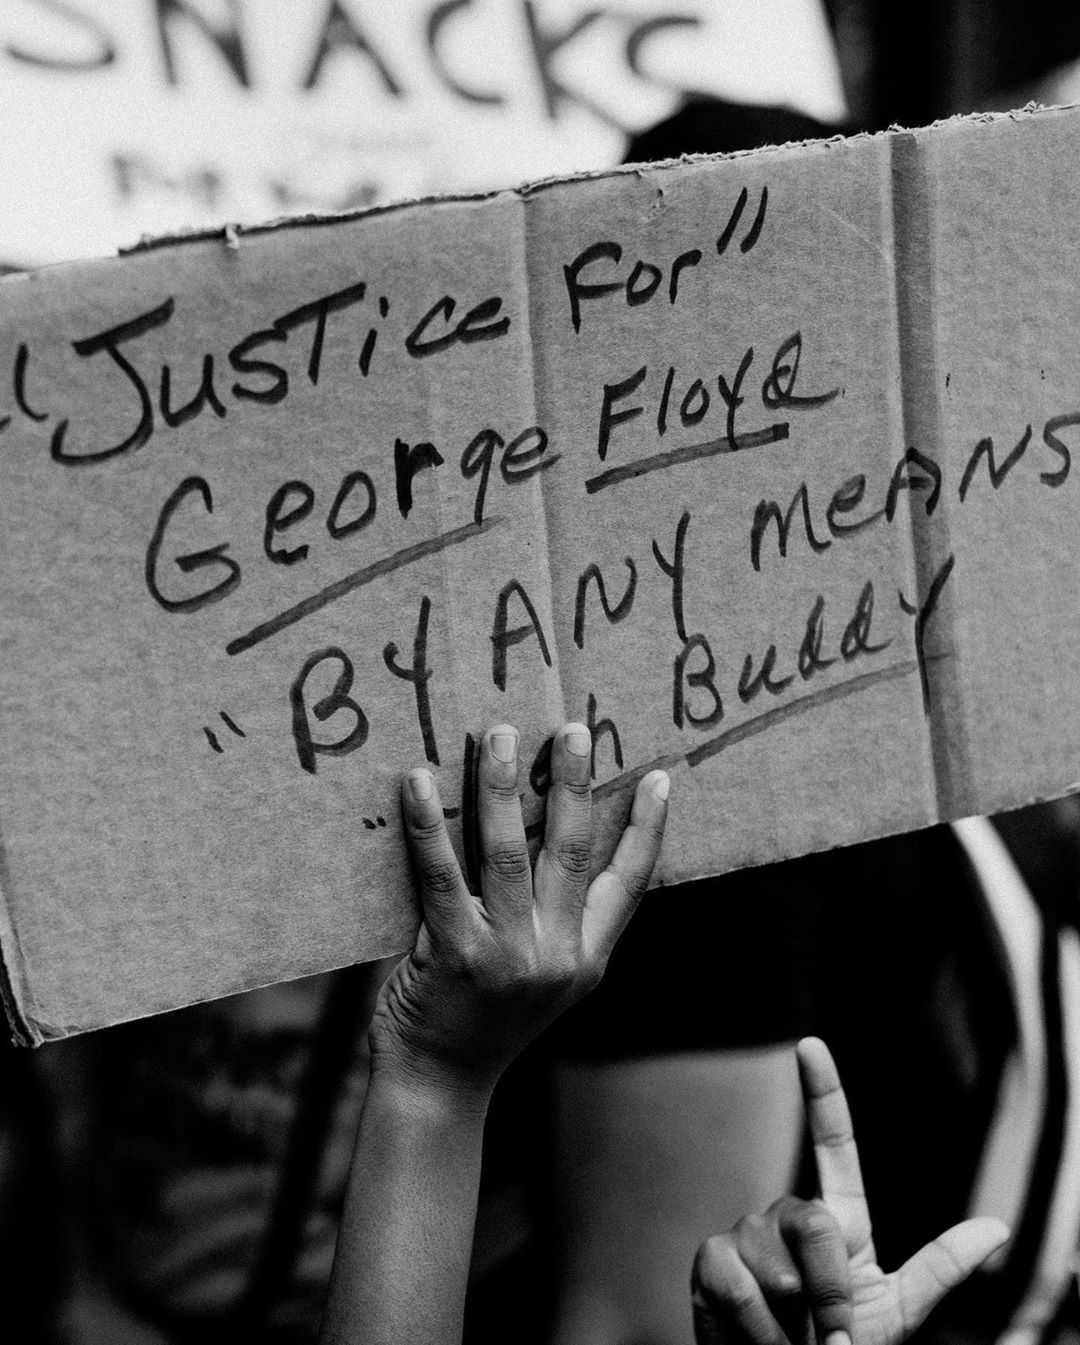 SNACKS
"Justice for"
George Floyd
"By Any Means
Buddy